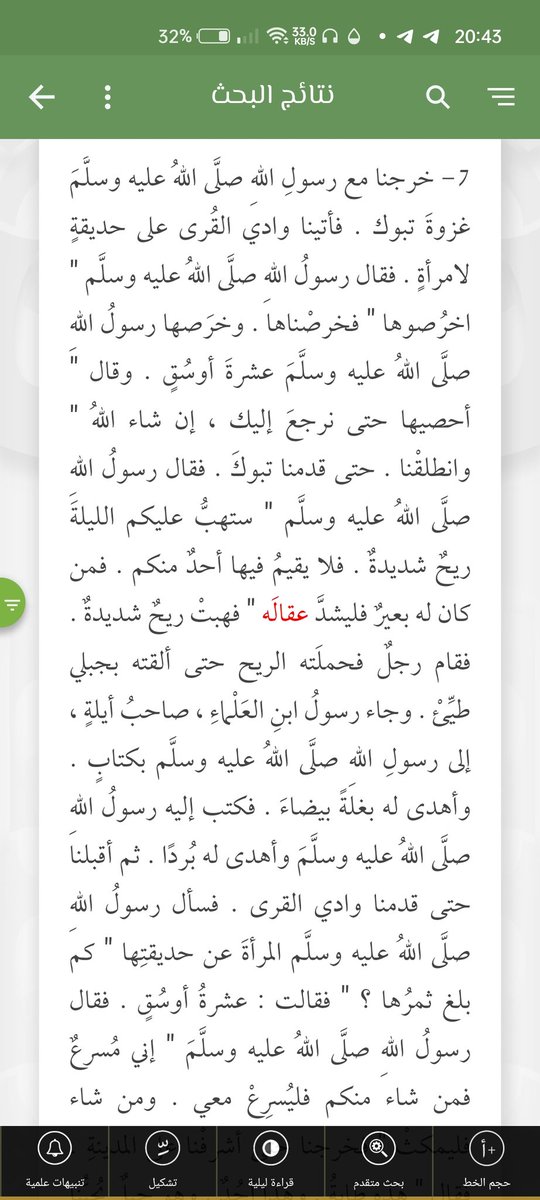 32% 33.0 KB/S 20:43
نتائج البحث
7- خرجنا مع رسولِ اللهِ صلَّى اللهُ عليه وسلَّمَ
غزوةَ تبوك . فأتينا وادي القُرى على حديقةٍ
لامرأةٍ . فقال رسولُ اللهِ صلَّى اللهُ عليه وسلَّم "
اخرُصوها " فخرصْناها . وخرَصها رسولُ اللهِ
صلَّى اللهُ عليه وسلَّمَ عشرةَ أوسُقٍ . وقال "
أحصيها حتى نرجعَ إليك ، إن شاء اللهُ "
وانطلقْنا . حتى قدمنا تبوكَ . فقال رسولُ اللهِ
صلَّى اللهُ عليه وسلَّم " ستهبُّ عليكم الليلةَ
ريحٌ شديدةٌ . فلا يقيمُ فيها أحدٌ منكم . فمن
كان له بعيرٌ فليشدَّ عقالَه " فهبتْ ريحٌ شديدةٌ .
فقام رجلٌ فحملَته الريح حتى ألقته بجبلي
طيِّئْ . وجاء رسولُ ابنِ العَلْماءِ ، صاحبُ أيلةٍ ،
إلى رسولِ اللهِ صلَّى اللهُ عليه وسلَّم بكتابٍ .
وأهدى له بغلَةً بيضاءَ . فكتب إليه رسولُ اللهِ
صلَّى اللهُ عليه وسلَّمَ وأهدى له بُردًا . ثم أقبلنا
حتى قدمنا وادي القرى . فسأل رسولُ اللهِ
صلَّى اللهُ عليه وسلَّم المرأةَ عن حديقتِها " كم
بلغ ثمرُها ؟ " فقالت : عشرةُ أوسُقٍ . فقال
رسولُ اللهِ صلَّى اللهُ عليه وسلَّمَ " إني مُسرعٌ
فمن شاءَ منكم فليُسرِعْ معي . ومن شاء
حجم الخط بحث متقدم قراءة ليلية تشكيل تنبيهات علمية